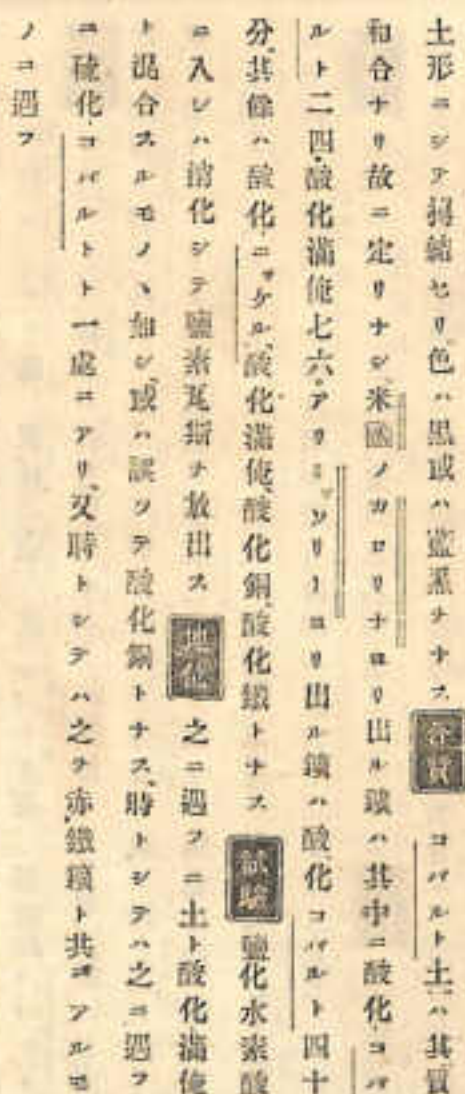 土形ニシテ摶結セリ色ハ黒或ハ藍黒ヲナス 本質 コバルト土ハ其質
和合ナリ故ニ定リナシ米國ノカロリナヨリ出ル礦ハ其中ニ酸化コバ
ルト二四、酸化滿俺七六、アリミッソリーヨリ出ル鑛ハ酸化コバルト四十
分、其餘ハ酸化ニッケル、酸化滿俺、酸化銅、酸化鐵トナス 試驗 鹽化水素酸
ニ入レハ消化シテ鹽素瓦斯ヲ放出ス 之ニ遇フニ土ト酸化滿俺
ト混合スルモノヽ如シ、或ハ誤ツテ酸化銅トナス、時トシテハ之ニ遇フ
ニ硫化コバルトト一處ニアリ、又時トシテハ之ヲ赤鐵鑛ト共ニアルモ
ノニ遇フ